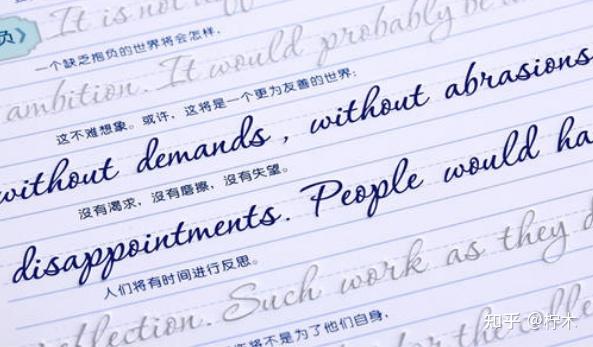 负》
It is not
一个缺乏抱负的世界将会怎样，
ambition. It would probably be
这不难想象。或许，这将是一个更为友善的世界：
without demands, without abrasions
没有渴求，没有磨擦，没有失望。
disappointments. People would ha
人们将有时间进行反思。
flection. Such work as they d
将不是为了他们自身，
for the colle
知乎 @柠木